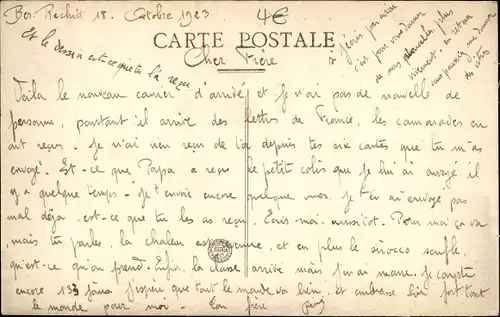 Ber Rechid 18. Octobre 1923
4€
Et le dessin est-ce que tu l'a reçu
CARTE POSTALE
Cher Frère
si j'écris pas mieux
c'est pour vous donner
de mes nouvelles plus
vivement en retour
vous pourriez me donner
des vôtres
Voila le nouveau courrier d'arrivé et je n'ai pas de nouvelle de
personne, pourtant il arrive des lettres de France, les camarades en
ont reçus. Je n'ai rien reçu de toi depuis tes six cartes que tu m'as
envoyé. Est-ce que Papa a reçu le petit colis que je lui ai envoyé il
y a quelque temps. Je t'envoie encore quelque vues. Je t'en ai envoyé pas
mal déja. est-ce que tu les as reçu. Ecris-moi aussitot. Pour moi ça va
mais tu parles. la chaleur est revenue et en plus le sirocco souffle,
qu'est-ce qu'on prend. Enfin, la classe arrive mais j'en ai marre. Je compte
encore 133 jours j'espère que tout le monde va bien et embrasse bien fort tout
le monde pour moi. Ton frère